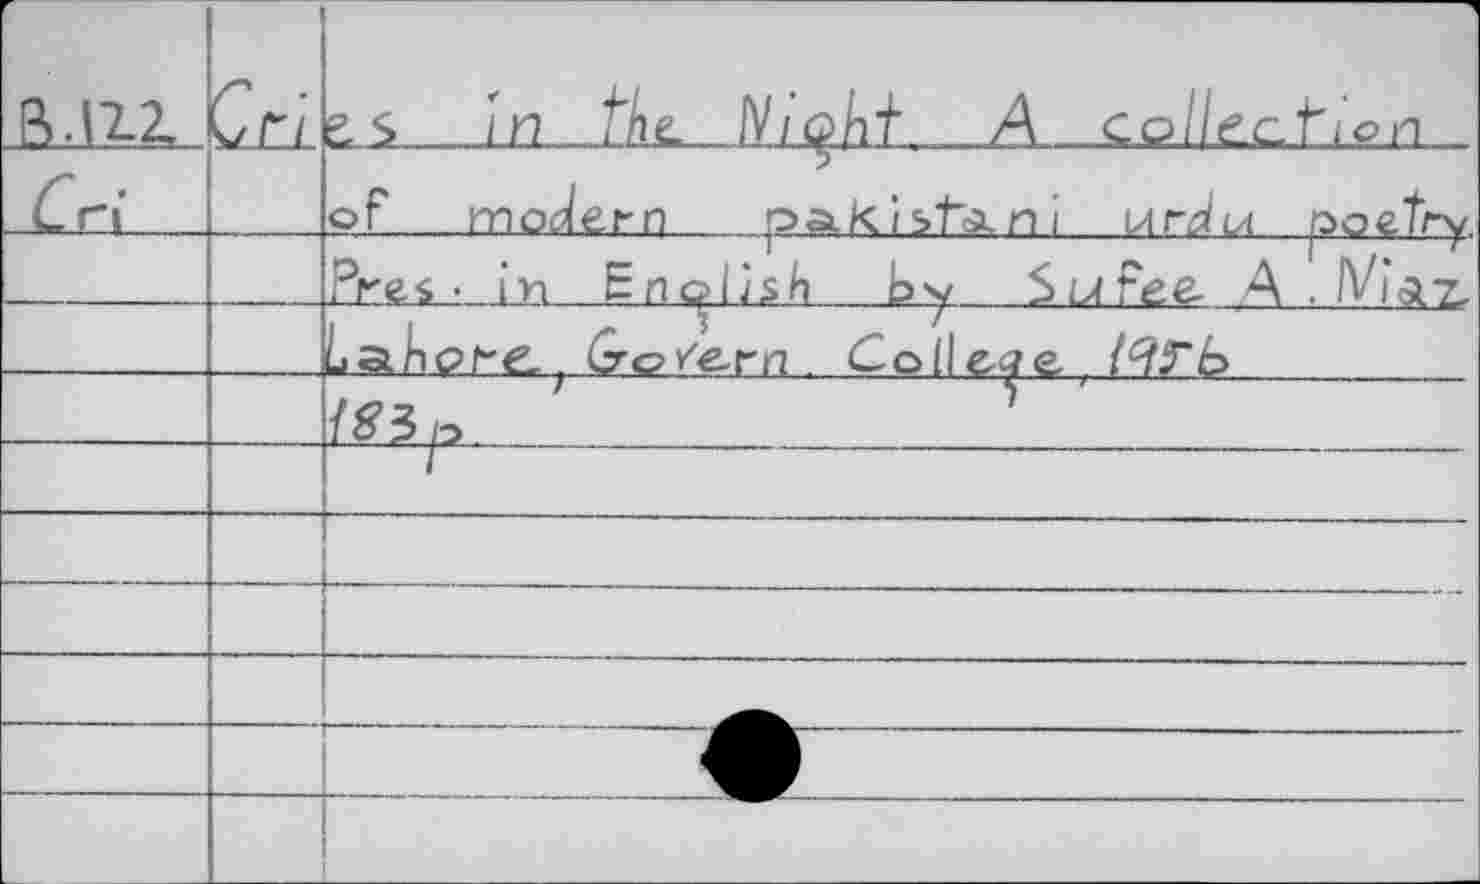 B.122 Cries in the Night. A collection
Cri of modern pakistani urdu poetry.
Pres. in English by Sufee A. Niaz
Lahore, Govern. College, 1956
183p.